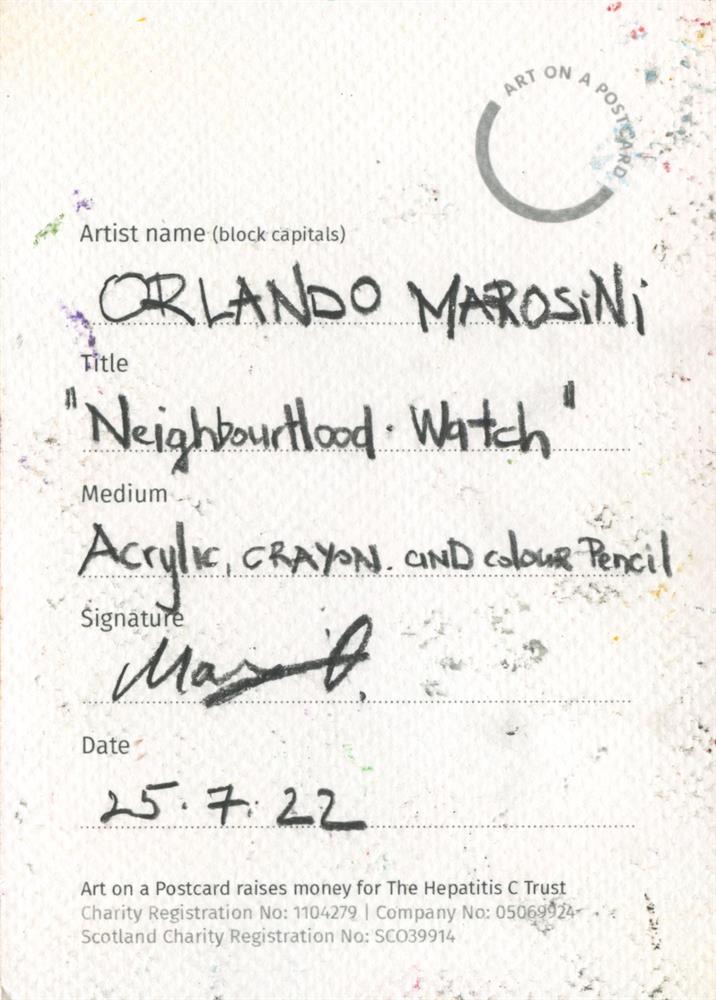 ART ON A POSTCARD
Artist name (block capitals)
ORLANDO MAROSiNi
Title
"NeighbourHood · Watch"
Medium
Acrylic, CRAYON. AND colour Pencil
Signature
Date
25.7.22
Art on a Postcard raises money for The Hepatitis C Trust
Charity Registration No: 1104279 | Company No: 05069924
Scotland Charity Registration No: SCO39914